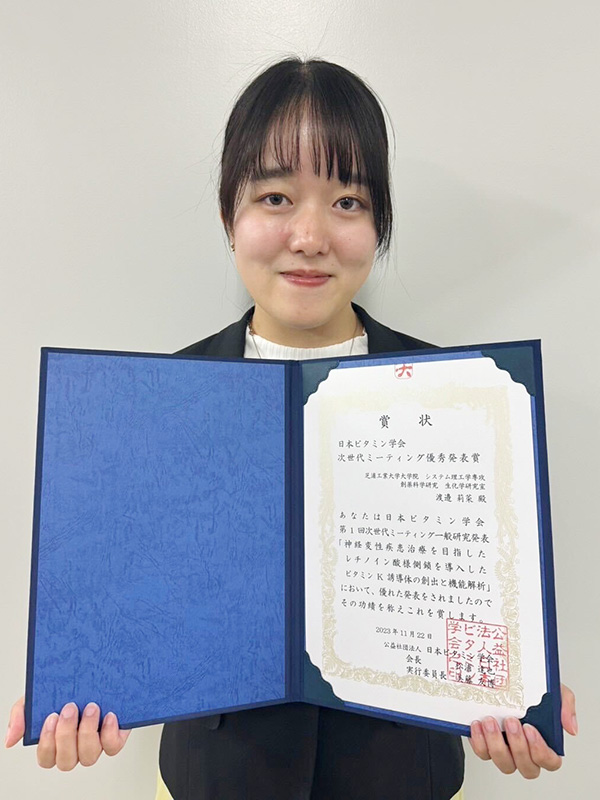 賞状
日本ビタミン学会
次世代ミーティング優秀発表賞
芝浦工業大学大学院 システム理工学専攻
創薬科学研究 生化学研究室
渡邉 莉菜 殿
あなたは日本ビタミン学会
第1回次世代ミーティング一般研究発表
「神経変性疾患治療を目指した
レチノイン酸様側鎖を導入した
ビタミンK誘導体の創出と機能解析」
において、優れた発表をされましたので
その功績を称えこれを賞します。
2023年11月22日
公益社団法人 日本ビタミン学会
会長
実行委員長